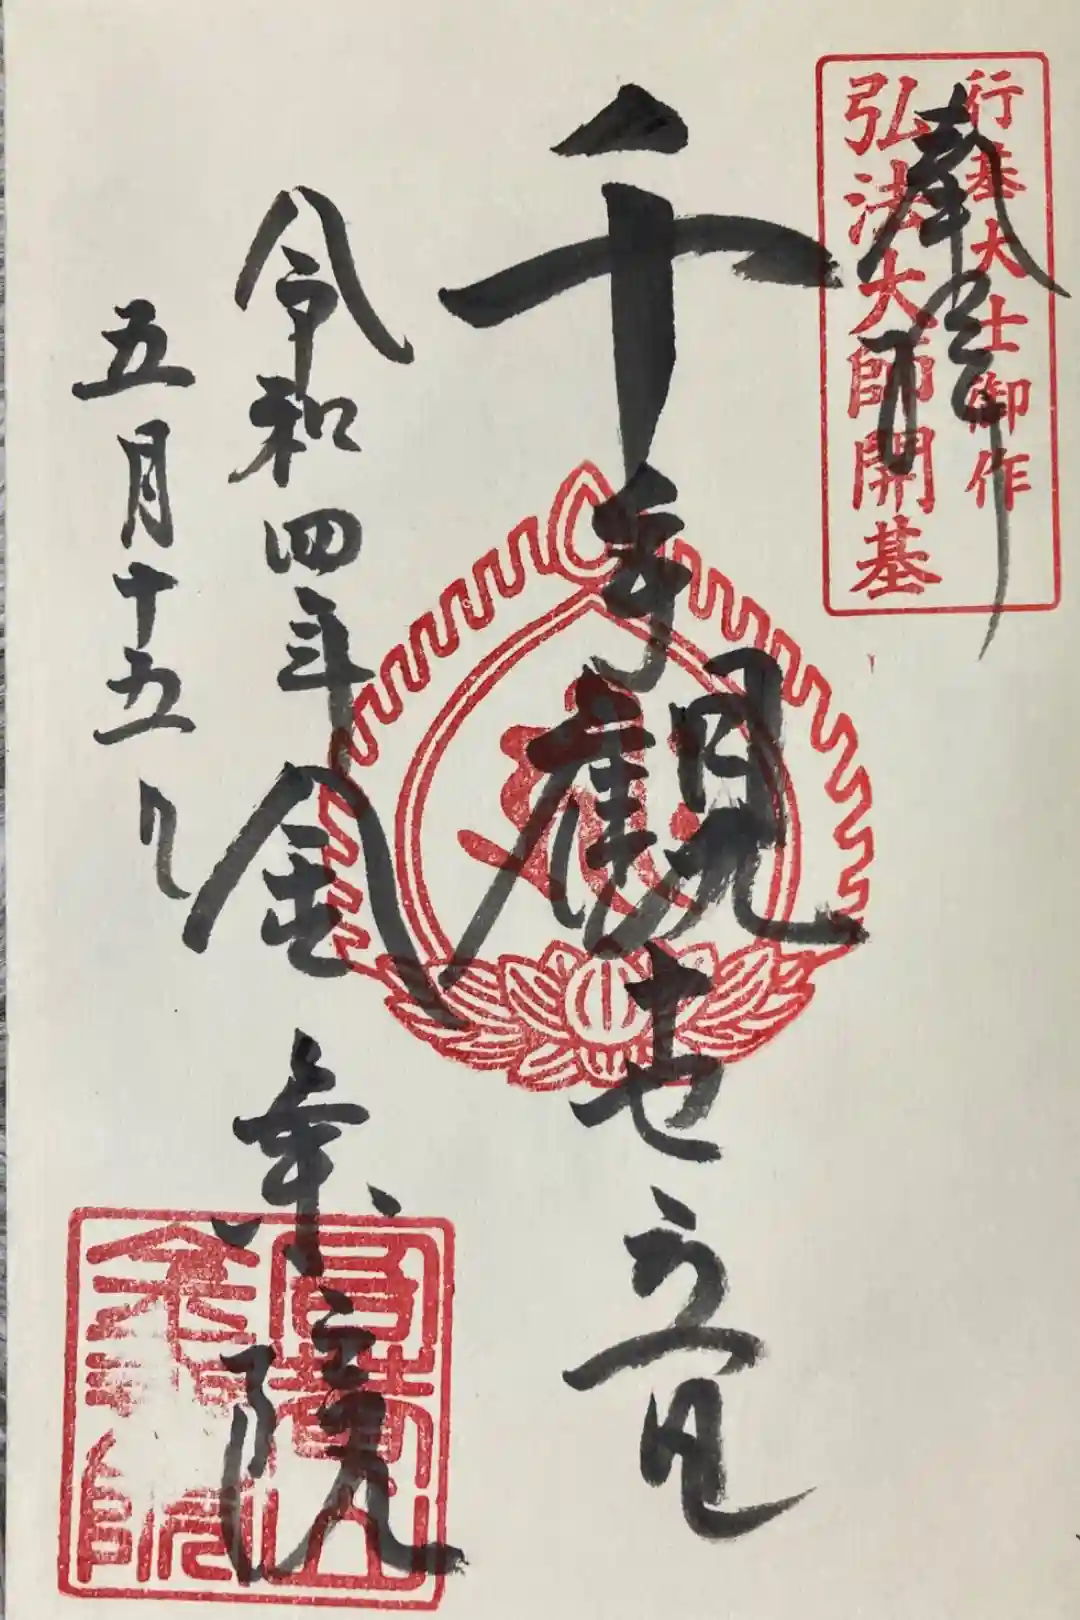 行基大士御作
弘法大師開基
奉拝
千手観世音
令和四年
五月十五日
金乗院